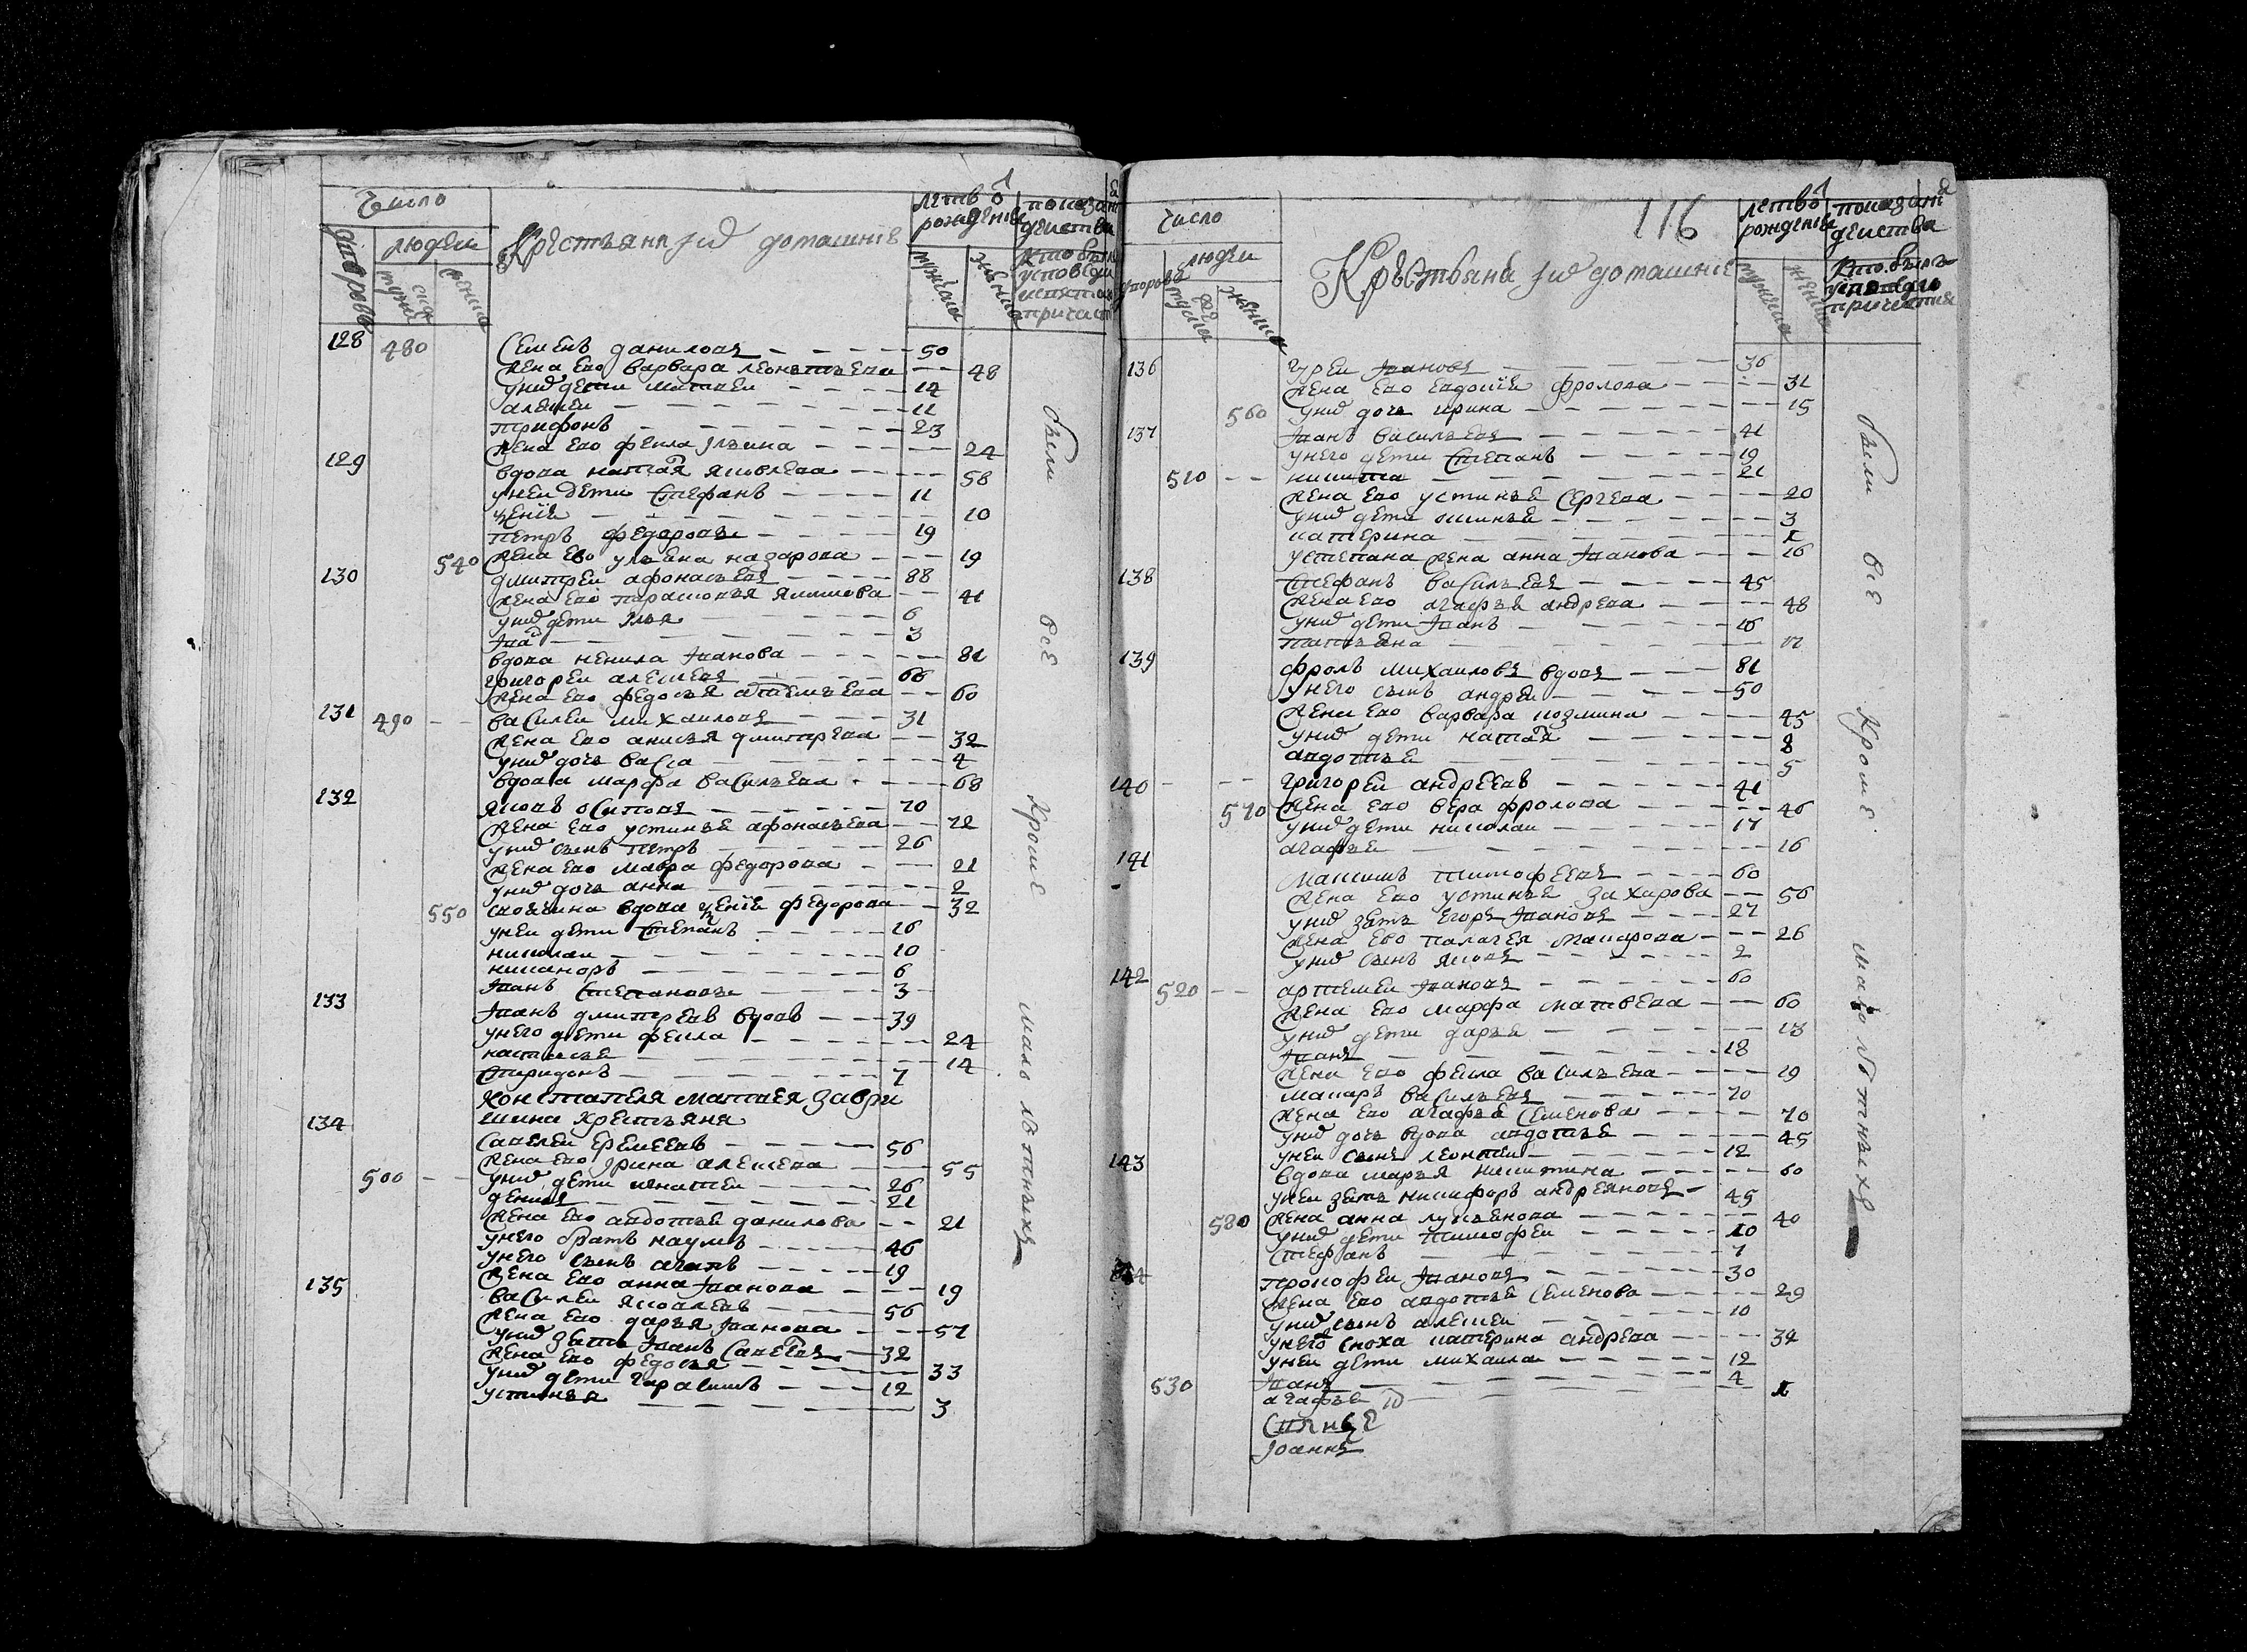 Число
людеи
Крестьяня и их домашние
летъ от рождения
показание действа
мужеска
женска
128 480 Семенъ даниловъ 50
жена ево варвара леонтьева 48
у них дети матвеи 14
алексеи 11
трифонъ 23
жена ево фекла ильина 24
129 вдова наталья яковлева 58
у неи дети стефанъ 11
ксения 10
петръ федоровъ 19
540 жена ево ульяна назарова 19
130 дмитреи афонасьевъ 88
жена ево парасковья якимова 41
у них дети илья 6
иван 3
вдова ненила иванова 81
григореи алексеевъ 66
жена ево федосья артемьева 60
131 490 василеи михаиловъ 31
жена ево анисья дмитрева 32
у них дочь васса 4
вдова марфа васильева 68
132 яковъ осиповъ 70
жена ево устинья афонасьева 72
у них сынъ петръ 26
жена ево мавра федорова 21
у них дочь анна 2
550 своячина вдова ксения федорова 32
у неи дети степанъ 16
николаи 10
никаноръ 6
иванъ степановъ 3
133 иванъ дмитревъ вдовъ 39
у него дети фекла 24
настасья 14
спиридонъ 7
матвея
крестьяня
134 савелеи еремеевъ 56
жена ево ирина алексева 55
500 у них дети игнатеи 26
денисъ 21
жена ево авдотья данилова 21
у него братъ наумъ 46
у него сынъ агапъ 19
жена ево анна иванова 19
135 василеи яковлевъ 56
жена ево дарья иванова 57
у них зять иванъ савелевъ 32
жена ево федосья 33
у них дети гарасимъ 12
устинья 3
были все кроме малолетныхъ
116
число
людеи
Крестьяня и их домашние
летъ от рождения
показание действа
136 гуреи ивановъ 36
жена ево евдокия фролова 31
560 у них дочь ирина 15
137 иванъ васильевъ 41
у него дети степанъ 19
510 никита 21
жена ево устинья сергева 20
у них дети аксинья 3
катерина 1
у степана жена анна иванова 16
138 стефанъ васильевъ 45
жена ево агафья андрева 48
у них дети иванъ 16
татьяна 11
139 фролъ михаиловъ вдовъ 81
у него сынъ андреи 50
жена ево варвара козмина 45
у них дети наталья 8
авдотья 5
140 григореи андреевъ 41
570 жена ево вера фролова 46
у них дети николаи 17
агафья 16
141 максимъ тимофеевъ 60
жена ево устинья захарова 56
у них зять егоръ ивановъ 27
жена ево палагея макарова 26
у них сынъ яковъ 2
142 520 артемеи ивановъ 60
жена ево марфа матвева 60
у них дети дарья 13
иванъ 18
жена ево фекла васильева 19
макаръ васильевъ 70
жена ево агафья семенова 70
у них дочь вдова авдотья 45
у неи сынъ леонтеи 12
143 вдова марья никитина 60
у неи зять никифоръ андреяновъ 45
580 жена анна лукьянова 40
у них дети тимофеи 10
стефанъ 7
144 прокофеи ивановъ 30
жена ево авдотья семенова 29
у них сынъ алексеи 10
у него сноха катерина андрева 34
у неи дети михаила 12
530 иванъ 4
агафья 1
иоаннъ
были все кроме малолетныхъ